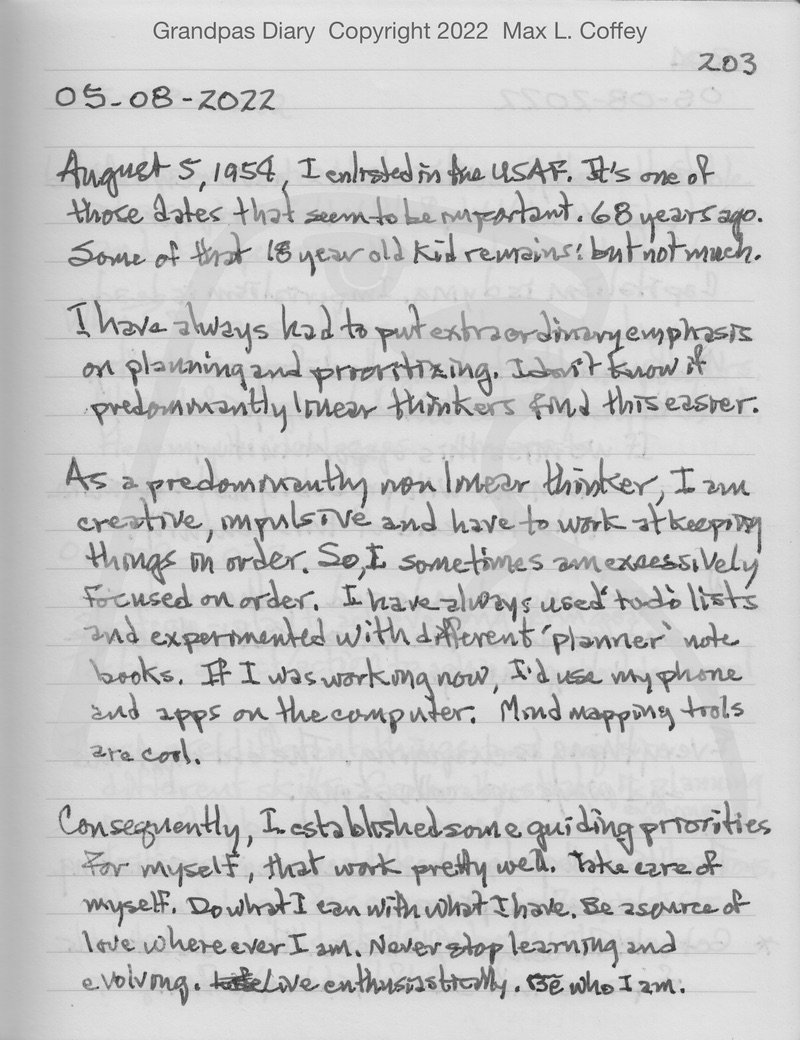 Grandpas Diary Copyright 2022 Max L. Coffey
203
05-08-2022
August 5, 1954, I enlisted in the USAF. It's one of
those dates that seem to be important. 68 years ago.
Some of that 18 year old kid remains: but not much.
I have always had to put extraordinary emphasis
on planning and prioritizing. I don't know if
predominantly linear thinkers find this easier.
As a predominantly non linear thinker, I am
creative, impulsive and have to work at keeping
things in order. So, I sometimes am excessively
focused on order. I have always used 'to do' lists
and experimented with different 'planner' note
books. If I was working now, I'd use my phone
and apps on the computer. Mind mapping tools
are cool.
Consequently, I established some guiding priorities
for myself, that work pretty well. Take care of
myself. Do what I can with what I have. Be a source of
love where ever I am. Never stop learning and
evolving. Live enthusiastically. Be who I am.